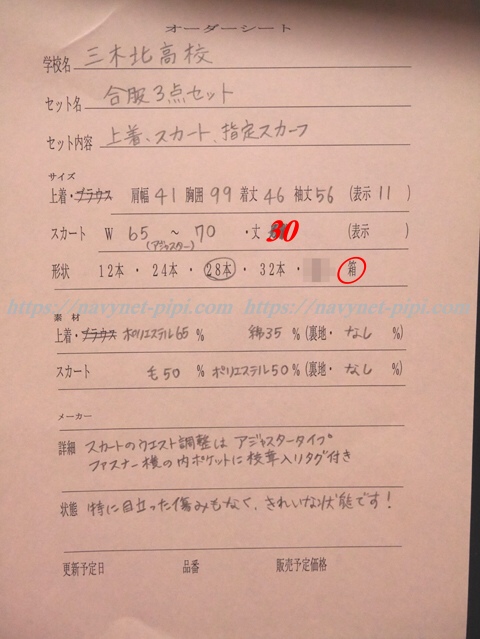 オーダーシート
学校名 三木北高校
セット名 合服3点セット
セット内容 上着、スカート、指定スカーフ
サイズ
上着・ブラウス 肩幅 41 胸囲 99 着丈 46 袖丈 56 (表示 11 )
スカート W 65 ~ 70 ・丈 30 (表示 )
(アジャスター)
形状 12本・24本・28本・32本・ 箱
https://navynet-pipi.com/ https://navynet-pipi.com/
素材
上着・ブラウス ポリエステル65 % 綿35 % (裏地・ なし %)
スカート 毛50 % ポリエステル50 % (裏地・ なし %)
メーカー
詳細 スカートのウエスト調整は アジャスタータイプ
ファスナー横の内ポケットに校章入りタグ付き
状態 特に目立った傷みもなく、きれいな状態です!
更新予定日 品番 販売予定価格